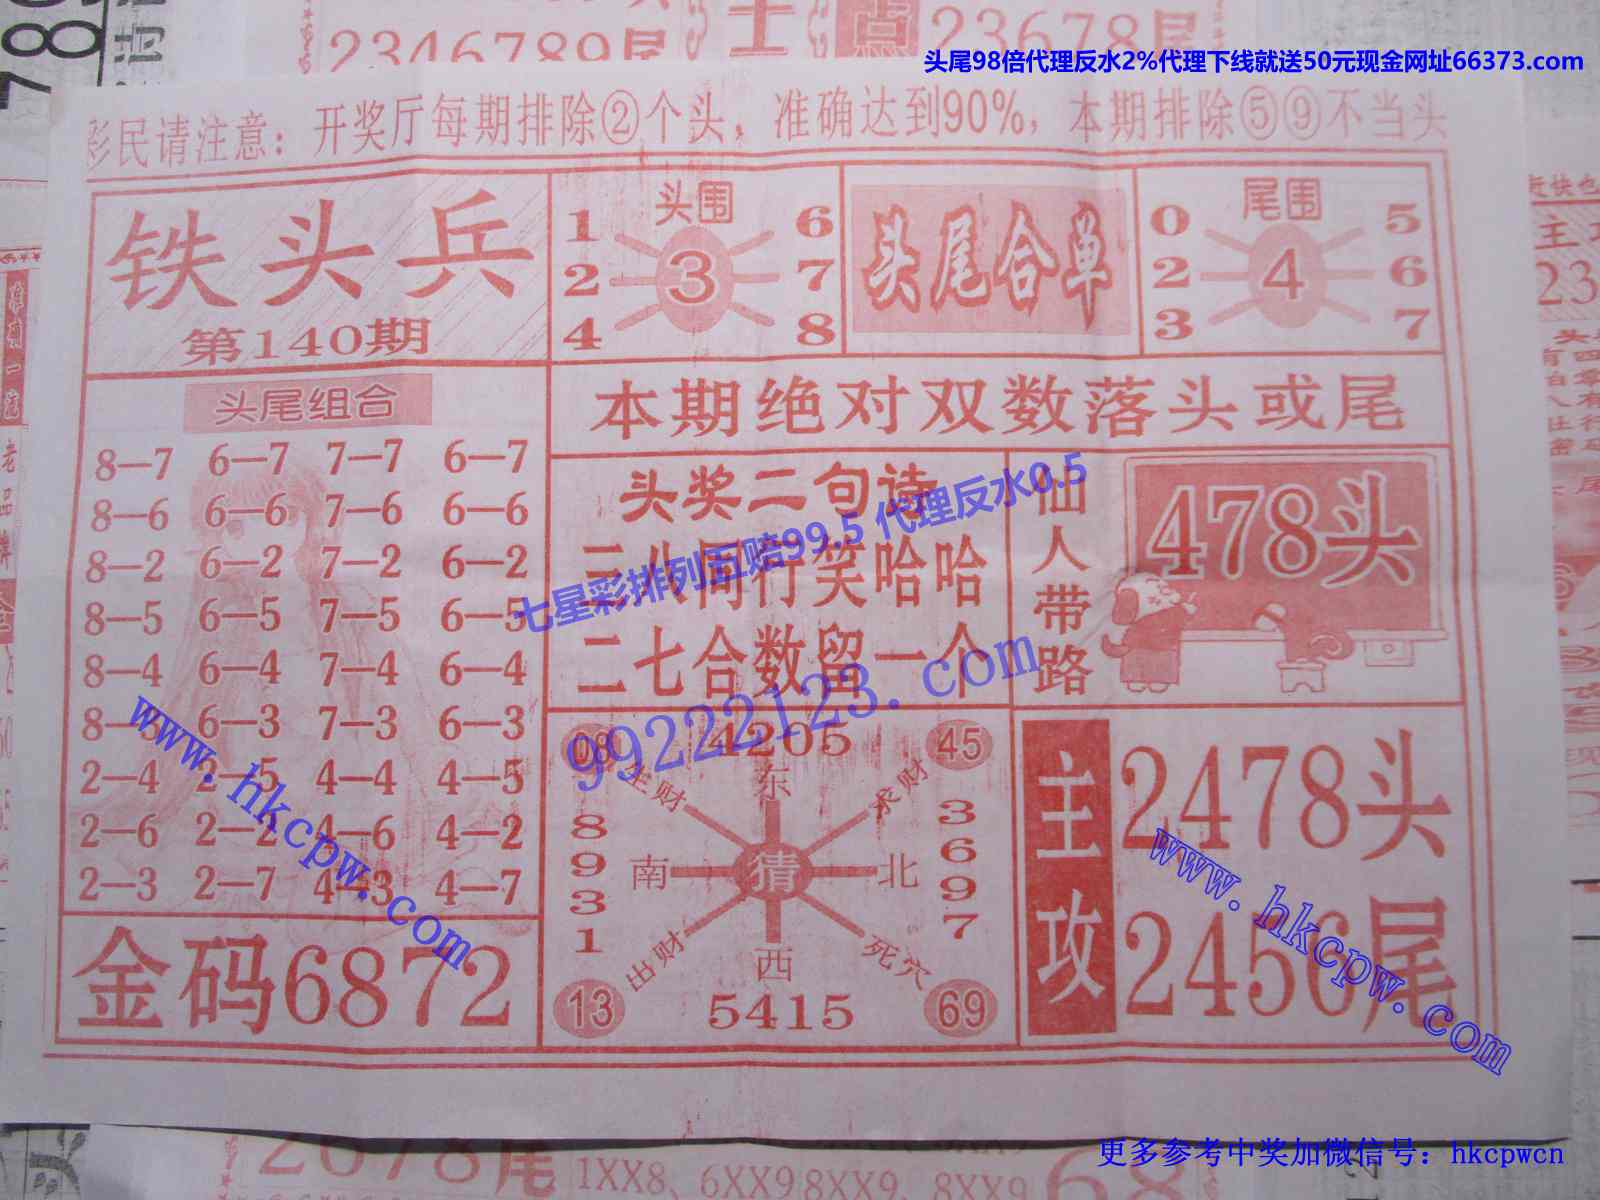 2346789尾
23678尾
头尾98倍代理反水2%代理下线就送50元现金网址66373.com
彩民请注意：开奖厅每期排除②个头，准确达到90%，本期排除⑤⑨不当头
铁头兵
第140期
头围
1 6
2 3 7
4 8
头尾合单
尾围
0 5
2 4 6
3 7
本期绝对双数落头或尾
头尾组合
8—7 6—7 7—7 6—7
8—6 6—6 7—6 6—6
8—2 6—2 7—2 6—2
8—5 6—5 7—5 6—5
8—4 6—4 7—4 6—4
8—3 6—3 7—3 6—3
2—4 2—5 4—4 4—5
2—6 2—2 4—6 4—2
2—3 2—7 4—3 4—7
金码6872
头奖二句诗
三八同行笑哈哈
二七合数留一个
仙人带路
478头
08 4205 45
生财 东 求财
8931
南 猜 北
3697
出财 西 死穴
13 5415 69
主攻
2478头
2456尾
七星彩排列五赔99.5 代理反水0.5
99222123.com
www.hkcpw.com
www.hkcpw.com
更多参考中奖加微信号：hkcpwcn
2678尾
1XX8、6XX9 8XX9、8XX9
68